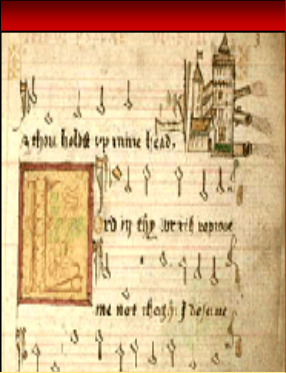 thou holdst up mine head,
rd in thy wrath reprove
me not though I deserve